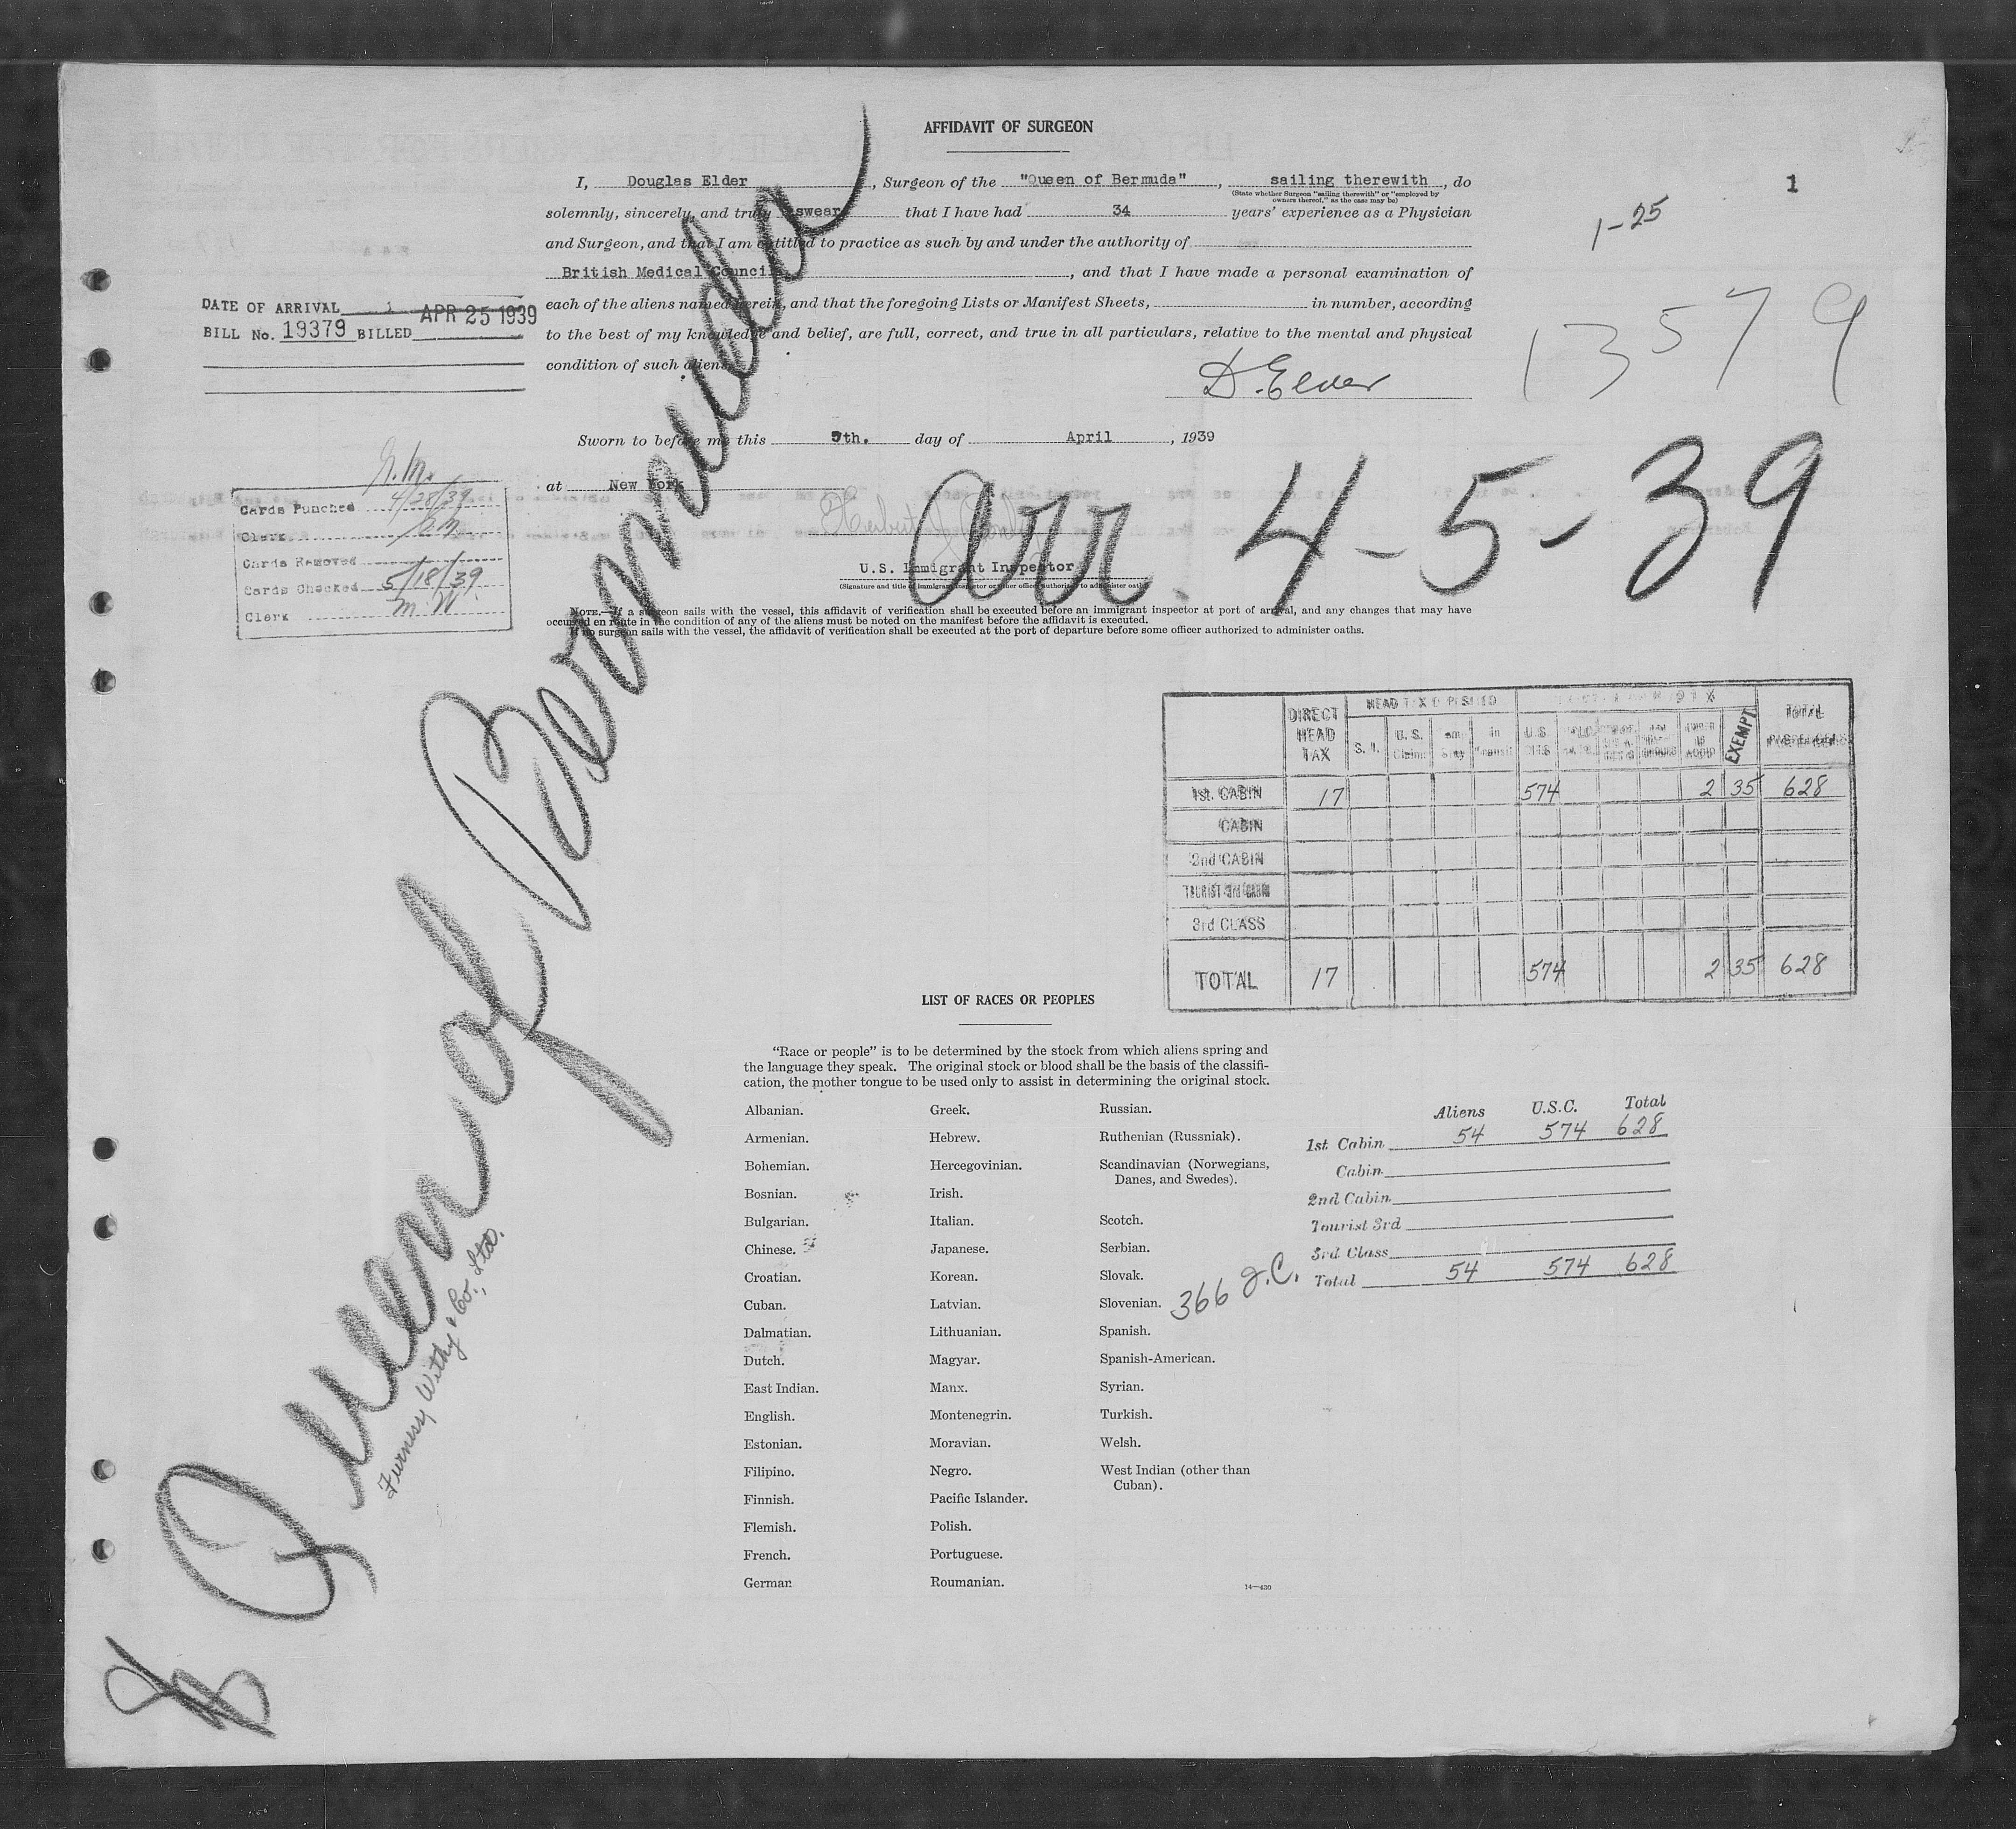 AFFIDAVIT OF SURGEON
I, Douglas Elder, Surgeon of the "Queen of Bermuda", sailing therewith, do
(State whether Surgeon "sailing therewith" or "employed by
owners thereof," as the case may be)
solemnly, sincerely, and truly swear that I have had 34 years' experience as a Physician
and Surgeon, and that I am entitled to practice as such by and under the authority of
British Medical Council, and that I have made a personal examination of
each of the aliens named herein, and that the foregoing Lists or Manifest Sheets, in number, according
to the best of my knowledge and belief, are full, correct, and true in all particulars, relative to the mental and physical
condition of such aliens.
D. Elder
Sworn to before me this 5th. day of April, 1939
at New York
Herbert
U.S. Immigrant Inspector
(Signature and title of immigrant inspector or other officer authorized to administer oaths)
NOTE.—If a surgeon sails with the vessel, this affidavit of verification shall be executed before an immigrant inspector at port of arrival, and any changes that may have
occurred en route in the condition of any of the aliens must be noted on the manifest before the affidavit is executed.
If no surgeon sails with the vessel, the affidavit of verification shall be executed at the port of departure before some officer authorized to administer oaths.
1
1-25
13579
DATE OF ARRIVAL APR 25 1939
BILL No. 19379 BILLED
Cards Punched 4/28/39
Clerk
Cards Removed
Cards Checked 5/18/39
Clerk M.W.
Arr. 4-5-39
Queen of Bermuda
Furness, Withy & Co., Ltd.
DIRECT HEAD TAX
HEAD TAX DEPOSITED
S. I.
U. S. Claim
in Transit
U.S. CITS
UNDER 16 ACCOMP
EXEMPT
TOTAL
1st. CABIN 17 574 2 35 628
CABIN
2nd CABIN
TOURIST 3rd CABIN
3rd CLASS
TOTAL 17 574 2 35 628
LIST OF RACES OR PEOPLES
"Race or people" is to be determined by the stock from which aliens spring and
the language they speak. The original stock or blood shall be the basis of the classifi-
cation, the mother tongue to be used only to assist in determining the original stock.
Albanian.
Armenian.
Bohemian.
Bosnian.
Bulgarian.
Chinese.
Croatian.
Cuban.
Dalmatian.
Dutch.
East Indian.
English.
Estonian.
Filipino.
Finnish.
Flemish.
French.
German
Greek.
Hebrew.
Hercegovinian.
Irish.
Italian.
Japanese.
Korean.
Latvian.
Lithuanian.
Magyar.
Manx.
Montenegrin.
Moravian.
Negro.
Pacific Islander.
Polish.
Portuguese.
Roumanian.
Russian.
Ruthenian (Russniak).
Scandinavian (Norwegians,
Danes, and Swedes).
Scotch.
Serbian.
Slovak.
Slovenian.
Spanish.
Spanish-American.
Syrian.
Turkish.
Welsh.
West Indian (other than
Cuban).
14—430
Aliens U.S.C. Total
1st Cabin 54 574 628
Cabin
2nd Cabin
Tourist 3rd
3rd Class
Total 54 574 628
366 J.C.